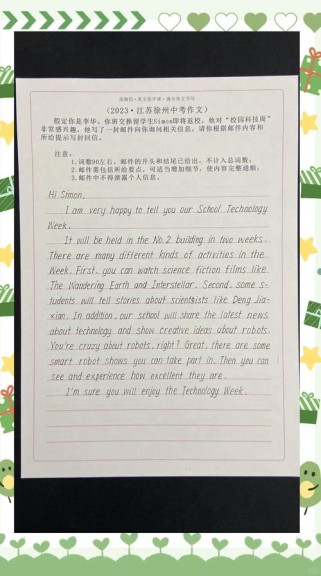 (2023·江苏徐州中考作文)
假定你是李华，你班交换留学生Simon即将返校，他对“校园科技周”
非常感兴趣，他写了一封邮件向你询问相关信息，请你根据邮件内容和
所给提示写封回信。
注意：
1.词数90左右，邮件的开头和结尾已给出，不计入总词数；
2.邮件需包括所给要点，可适当增加细节，使内容完整通顺；
3.邮件中不得泄露个人信息。
Hi Simon,
I am very happy to tell you our School Technology
Week.
It will be held in the No.2 building in two weeks.
There are many different kinds of activities in the
Week. First, you can watch science fiction films like
The Wandering Earth and Interstellar. Second, some s-
tudents will tell stories about scientists like Deng Jia-
xian. In addition, our school will share the latest news
about technology and show creative ideas about robots.
You're crazy about robots, right? Great, there are some
smart robot shows you can take part in. Then you can
see and experience how excellent they are.
I'm sure you will enjoy the Technology Week.